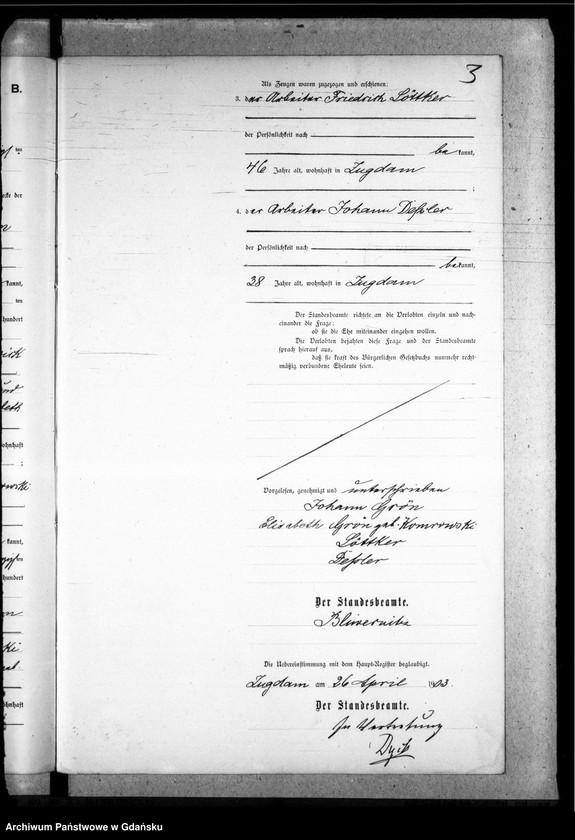 3
Als Zeugen waren zugezogen und erschienen:
3. der Arbeiter Friedrich Löttker
der Persönlichkeit nach
bekannt,
46 Jahre alt, wohnhaft in Zugdam
;
4. der Arbeiter Johann Deßler
der Persönlichkeit nach
bekannt,
38 Jahre alt, wohnhaft in Zugdam
Der Standesbeamte richtete an die Verlobten einzeln und nach-
einander die Frage:
ob sie die Ehe miteinander eingehen wollen.
Die Verlobten bejahten diese Frage und der Standesbeamte
sprach hierauf aus,
daß sie kraft des Bürgerlichen Gesetzbuchs nunmehr recht-
mäßig verbundene Eheleute seien.
Vorgelesen, genehmigt und unterschrieben
Johann Grön
Elisabeth Grön geb. Komrowski
Löttker
Deßler
Der Standesbeamte.
Die Uebereinstimmung mit dem Haupt-Register beglaubigt.
Zugdam am 26 April 1903.
Der Standesbeamte.
In Vertretung
B.
Archiwum Państwowe w Gdańsku